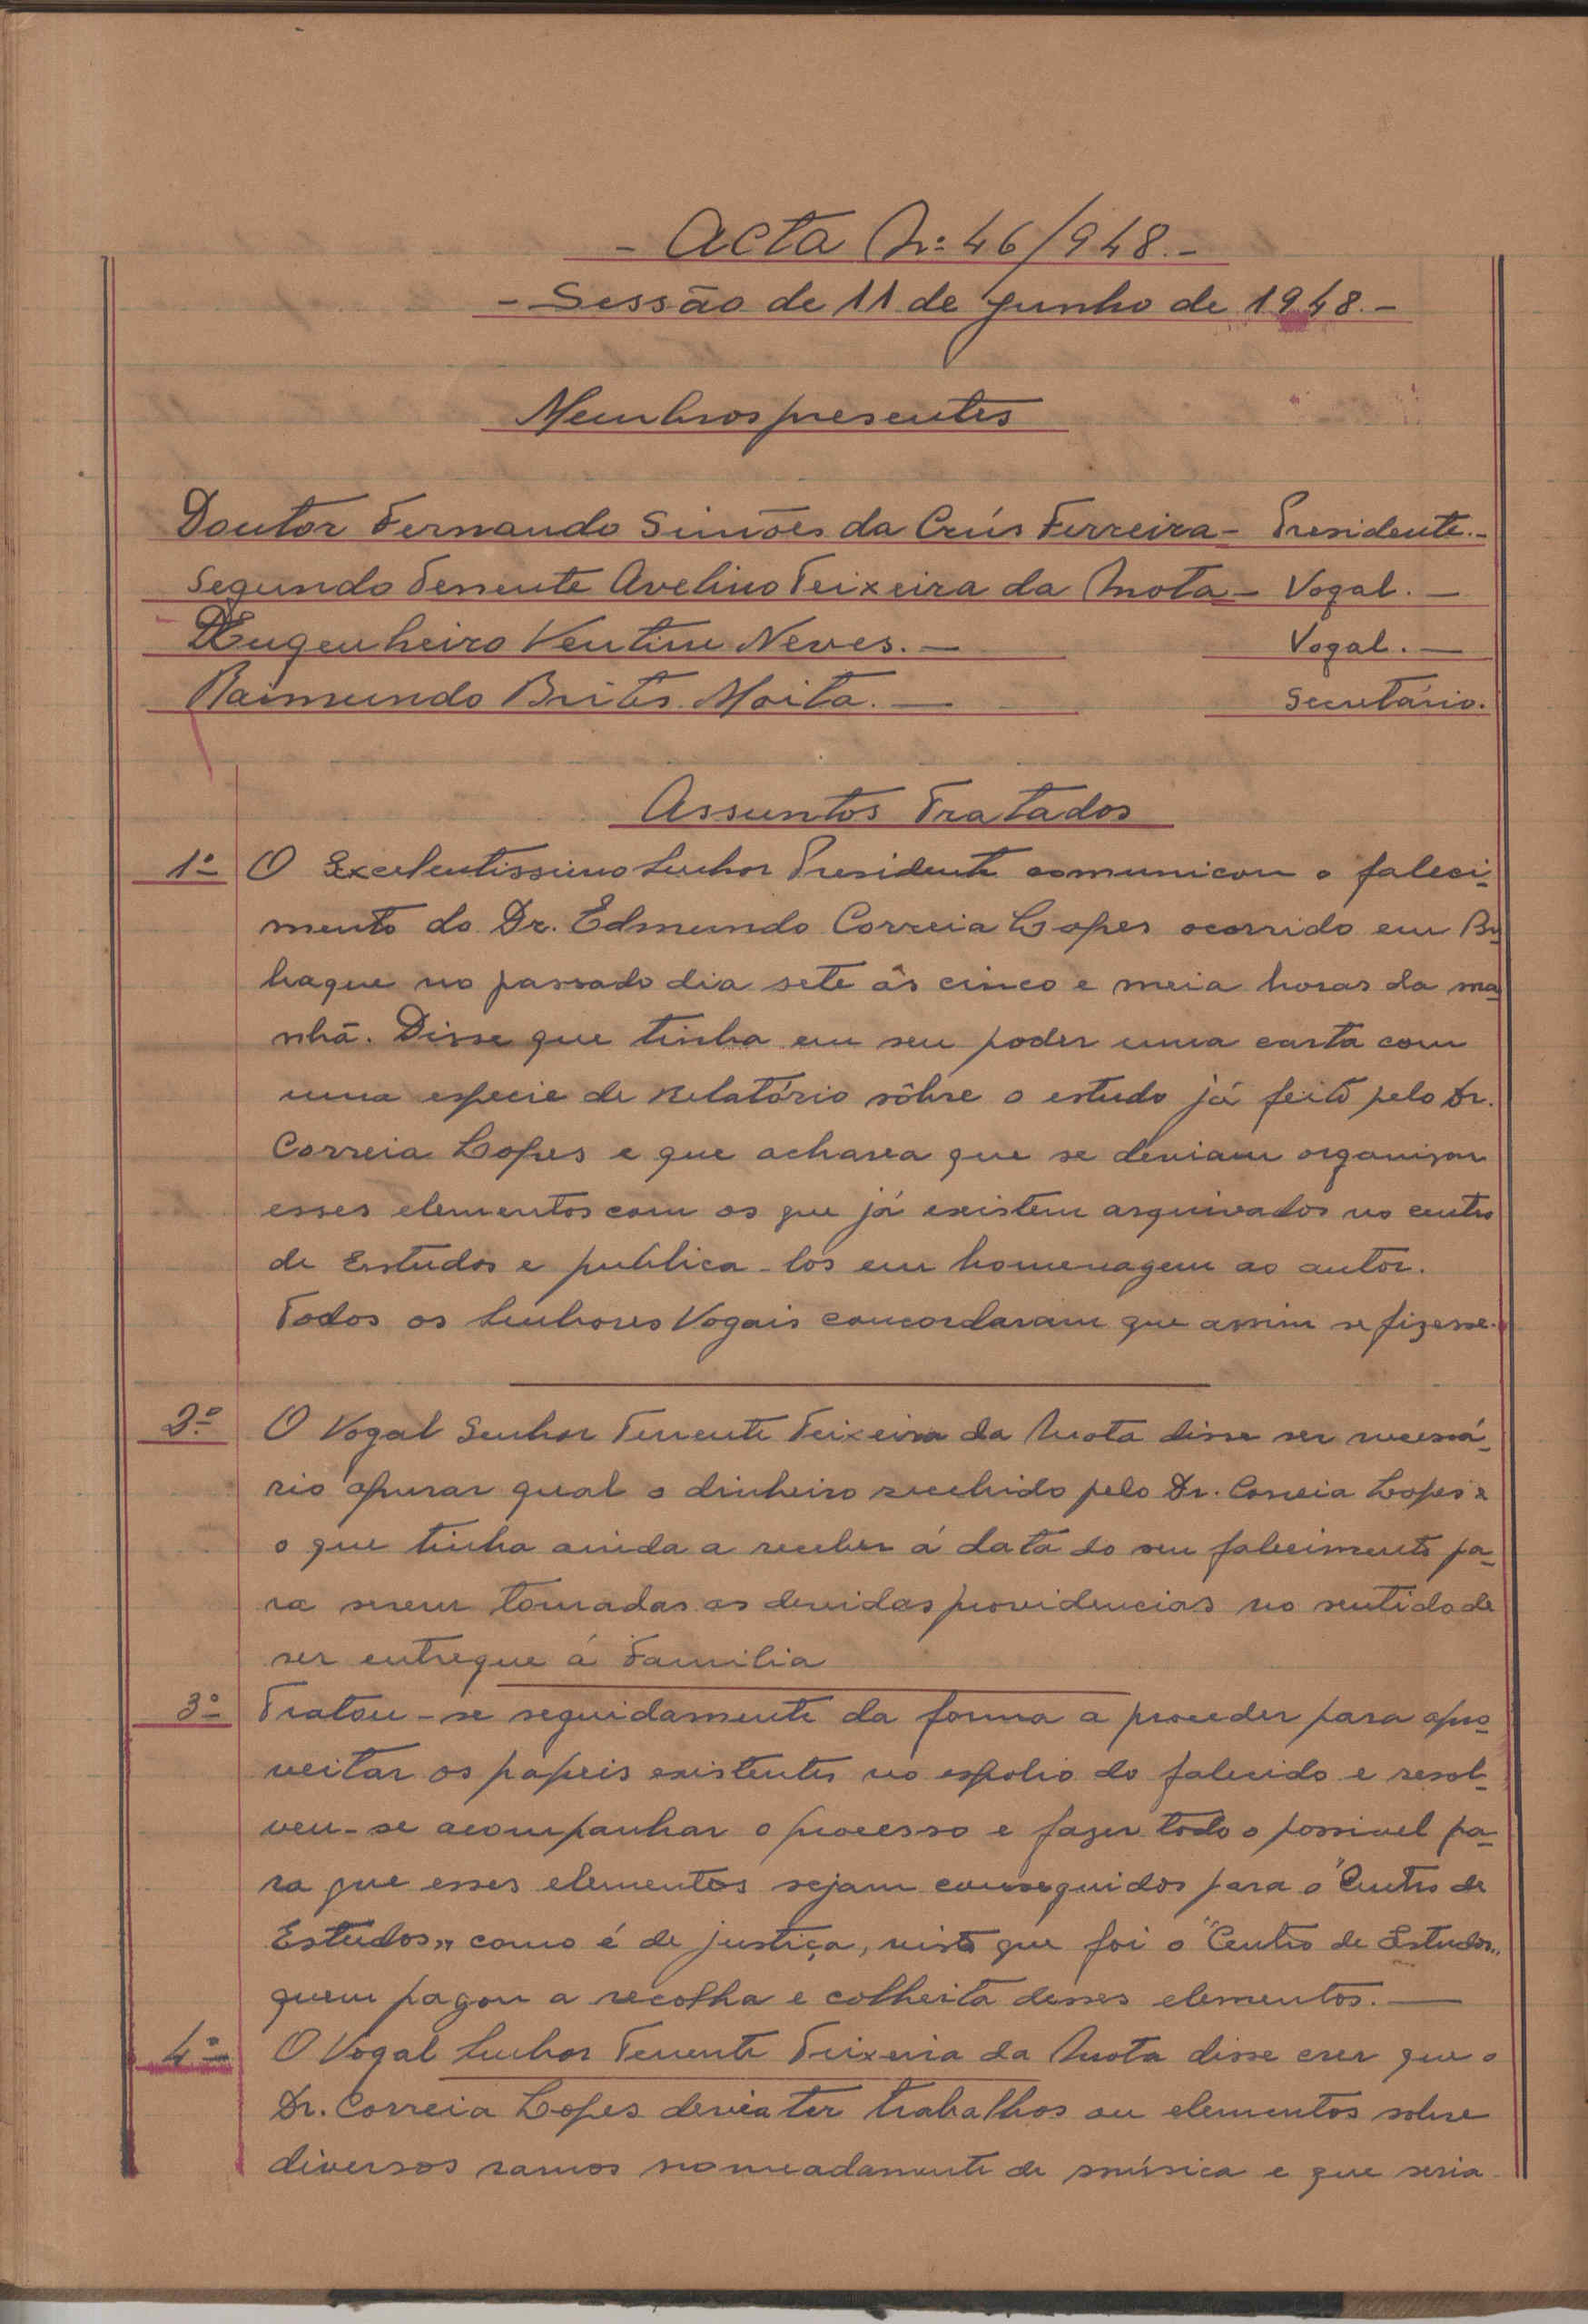 - Acta Nº 46/948.-
- Sessão de 11 de Junho de 1948.-
Membros presentes
Doutor Fernando Simões da Crús Ferreira - Presidente.-
Segundo Tenente Avelino Teixeira da Mota - Vogal. -
Engenheiro Ventim Neves. - Vogal. -
Raimundo Brites Moita. - Secretário.
Assuntos Tratados
1º O Excelentissimo Senhor Presidente comunicou o faleci-
mento do Dr. Edmundo Correia Lopes ocorrido em Bu
haque no passado dia sete ás cinco e meia horas da ma
nhã. Disse que tinha em seu poder uma carta com
uma especie de relatório sôbre o estudo já feito pelo Dr.
Correia Lopes e que achava que se deviam organizar
esses elementos com os que já existem arquivados no centro
de Estudos e publica-los em homenagem ao autor.
Todos os Senhores Vogais concordaram que assim se fizesse.
2º O Vogal Senhor Tenente Teixeira da Mota disse ser necessá-
rio apurar qual o dinheiro recebido pelo Dr. Correia Lopes e
o que tinha ainda a receber á data do seu falecimento pa-
ra serem tomadas as devidas providencias no sentido de
ser entregue á Familia
3º Tratou-se seguidamente da forma a proceder para apro-
veitar os papeis existentes no espolio do falecido e resol-
veu-se acompanhar o processo e fazer todo o possivel pa-
ra que esses elementos sejam conseguidos para o "Centro de
Estudos" como é de justiça, visto que foi o "Centro de Estudos"
quem pagou a recolha e colheita desses elementos. -
4º O Vogal Senhor Tenente Teixeira da Mota disse crer que o
Dr. Correia Lopes devia ter trabalhos ou elementos sobre
diversos ramos nomeadamente de música e que seria